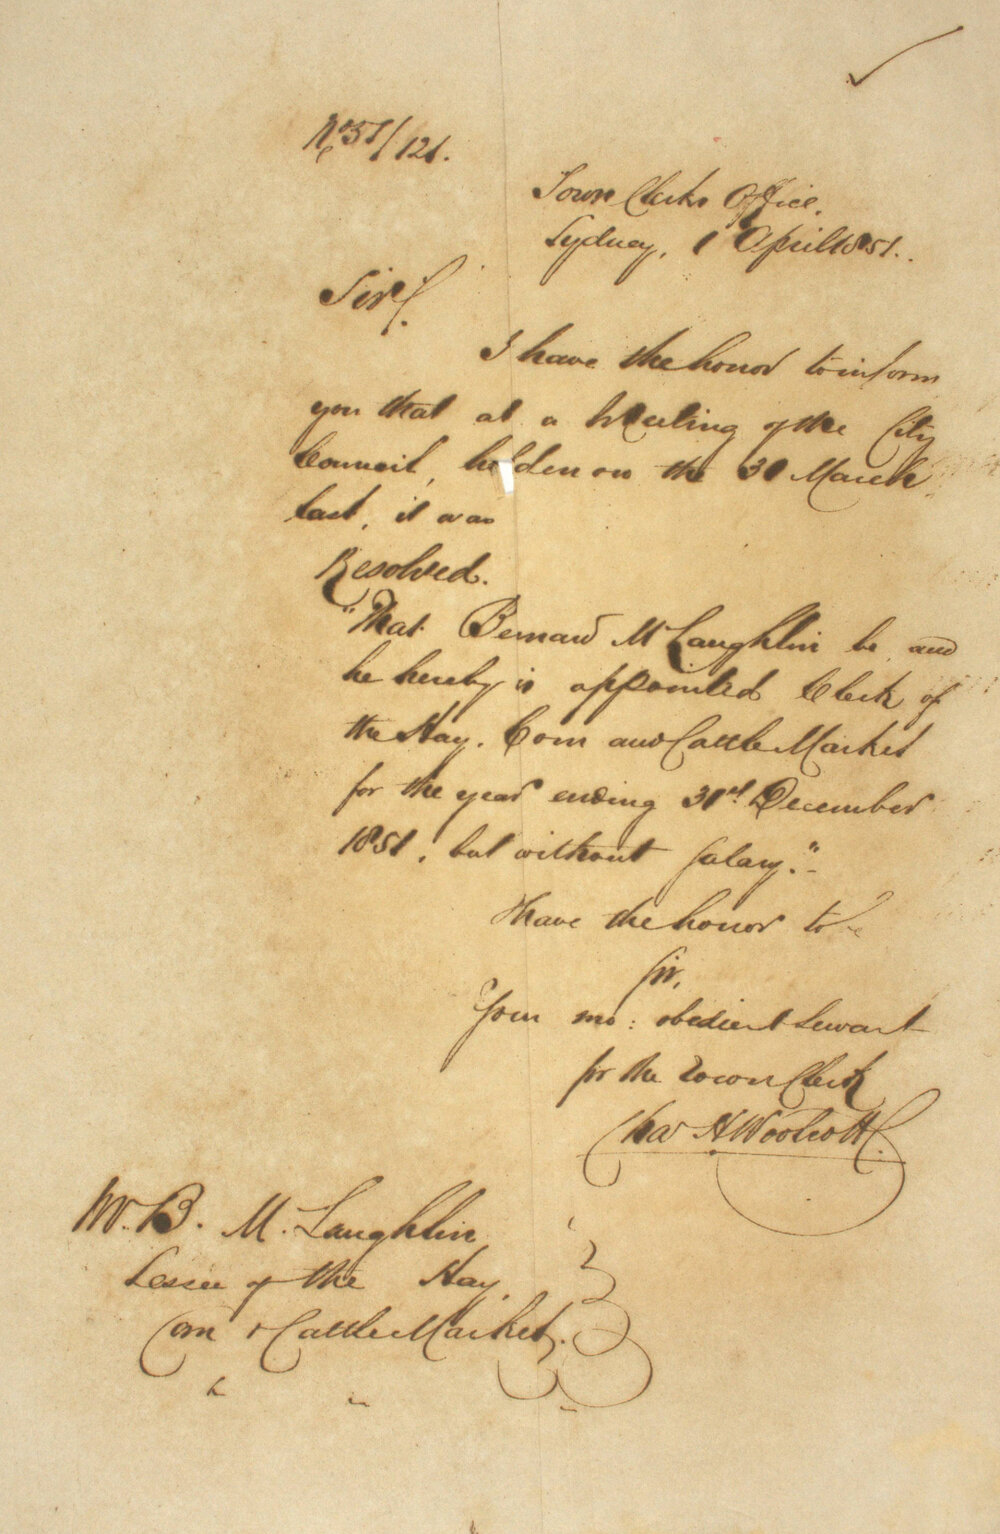 No 51/121.
Town Clerks Office,
Sydney, 1 April 1851.
Sir,
I have the honor to inform
you that at a Meeting of the City
Council, holden on the 31 March
last, it was
Resolved.
"That Bernard McLaughlin be and
he hereby is appointed Clerk of
the Hay, Corn and Cattle Market
for the year ending 31st December
1851, but without salary."
I have the honor to be
Sir,
Your mo: obedient Servant
for the Town Clerk
Chas H Woolcott
Mr. B. McLaughlin
Lessee of the Hay,
Corn & Cattle Market.